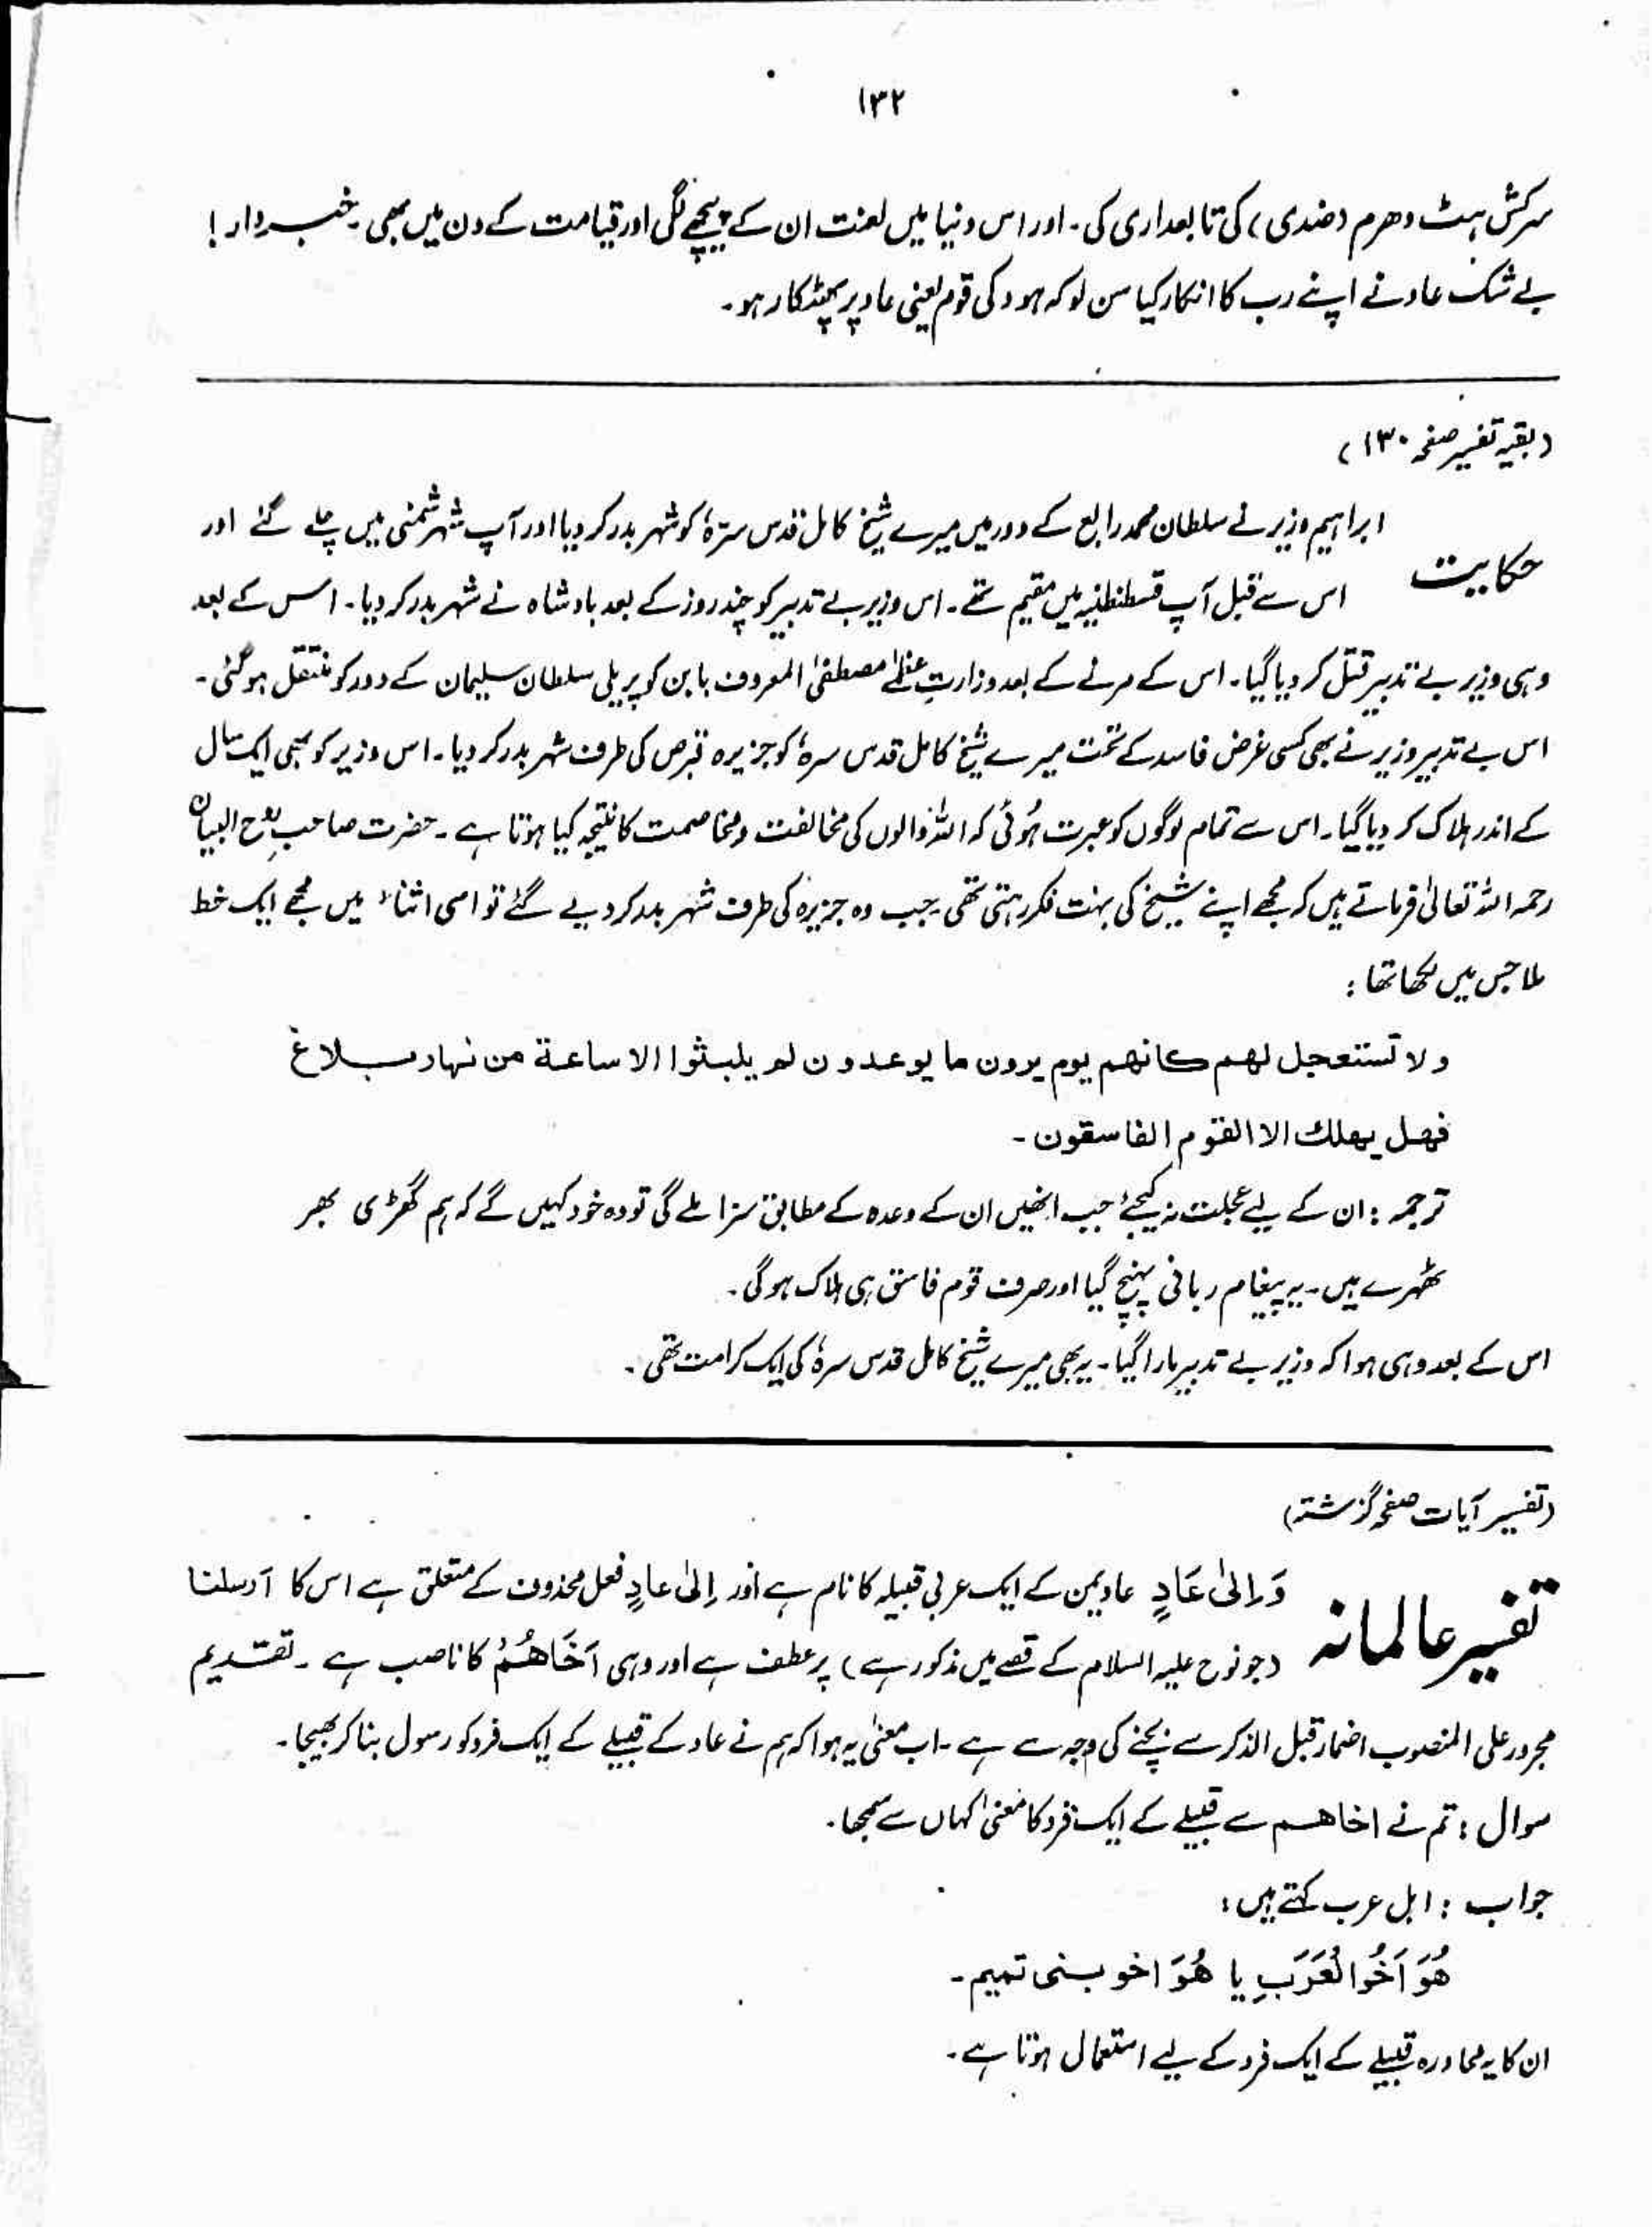 ۱۳۲
سرکش ہٹ دھرم (ضدی) کی تابعداری کی۔ اور اس دنیا میں لعنت ان کے پیچھے لگی اور قیامت کے دن میں بھی۔ خبردار!
بے شک عاد نے اپنے رب کا انکار کیا سن لو کہ ہود کی قوم یعنی عاد پر پھٹکار ہو۔
(بقیہ تفسیر صفحہ ۱۳۰)
حکایت
ابراہیم وزیر نے سلطان محمد رابع کے دور میں میرے شیخ کامل قدس سرّہٗ کو شہر بدر کر دیا اور آپ شہر شمنی میں چلے گئے اور
اس سے قبل آپ قسطنطنیہ میں مقیم تھے۔ اس وزیر بے تدبیر کو چند روز کے بعد بادشاہ نے شہر بدر کر دیا۔ اس کے بعد
وہی وزیر بے تدبیر قتل کر دیا گیا۔ اس کے مرنے کے بعد وزارتِ عظمٰے مصطفیٰ المعروف بابن کوپریلی سلطان سلیمان کے دور کو منتقل ہو گئی۔
اس بے تدبیر وزیر نے بھی کسی غرض فاسد کے تحت میرے شیخ کامل قدس سرہٗ کو جزیرہ قبرص کی طرف شہر بدر کر دیا۔ اس وزیر کو بھی ایک سال
کے اندر ہلاک کر دیا گیا۔ اس سے تمام لوگوں کو عبرت ہُوئی کہ اللہ والوں کی مخالفت و مخاصمت کا نتیجہ کیا ہوتا ہے۔ حضرت صاحب روح البیان
رحمہ اللہ تعالیٰ فرماتے ہیں کہ مجھے اپنے شیخ کی بہت فکر رہتی تھی۔ جب وہ جزیرہ کی طرف شہر بدر کر دیے گئے تو اسی اثناء میں مجھے ایک خط
ملا جس میں لکھا تھا:
ولا تستعجل لهم كانهم يوم يرون ما يوعدون لم يلبثوا الا ساعة من نهار بلاغ
فهل يهلك الا القوم الفاسقون۔
ترجمہ: ان کے لیے عجلت نہ کیجئے جب انھیں ان کے وعدہ کے مطابق سزا ملے گی تو وہ خود کہیں گے کہ ہم گھڑی بھر
ٹھہرے ہیں۔ یہ پیغام ربانی پہنچ گیا اور صرف قوم فاسق ہی ہلاک ہو گی۔
اس کے بعد وہی ہوا کہ وزیر بے تدبیر مارا گیا۔ یہ بھی میرے شیخ کامل قدس سرہٗ کی ایک کرامت تھی۔
(تفسیر آیات صفحہ گزشتہ)
تفسیر عالمانہ
وَ اِلیٰ عَادٍ عاد یمن کے ایک عربی قبیلہ کا نام ہے اور اِلیٰ عادٍ فعل محذوف کے متعلق ہے اس کا اَرسلنا
(جو نوح علیہ السلام کے قصے میں مذکور ہے) پر عطف ہے اور وہی اَخَاهُمْ کا ناصب ہے۔ تقدیم
مجرور علی المنصوب اضمار قبل الذکر سے بچنے کی وجہ سے ہے۔ اب معنٰی یہ ہوا کہ ہم نے عاد کے قبیلے کے ایک فرد کو رسول بنا کر بھیجا۔
سوال: تم نے اخاهم سے قبیلے کے ایک فرد کا معنیٰ کہاں سے سمجھا۔
جواب: اہل عرب کہتے ہیں:
هُوَ اَخُوالْعَرَبِ یا هُوَ اخو بنی تمیم۔
ان کا یہ محاورہ قبیلے کے ایک فرد کے لیے استعمال ہوتا ہے۔